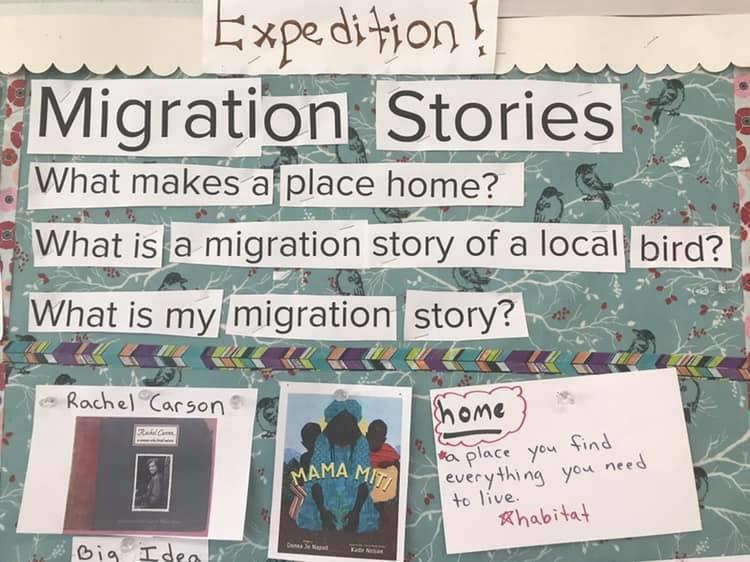 Expedition!
Migration Stories
What makes a place home?
What is a migration story of a local bird?
What is my migration story?
Rachel Carson
Rachel Carson
MAMA MITI
Donna Jo Napoli
Kadir Nelson
home
*a place you find
everything you need
to live.
*habitat
Big Idea